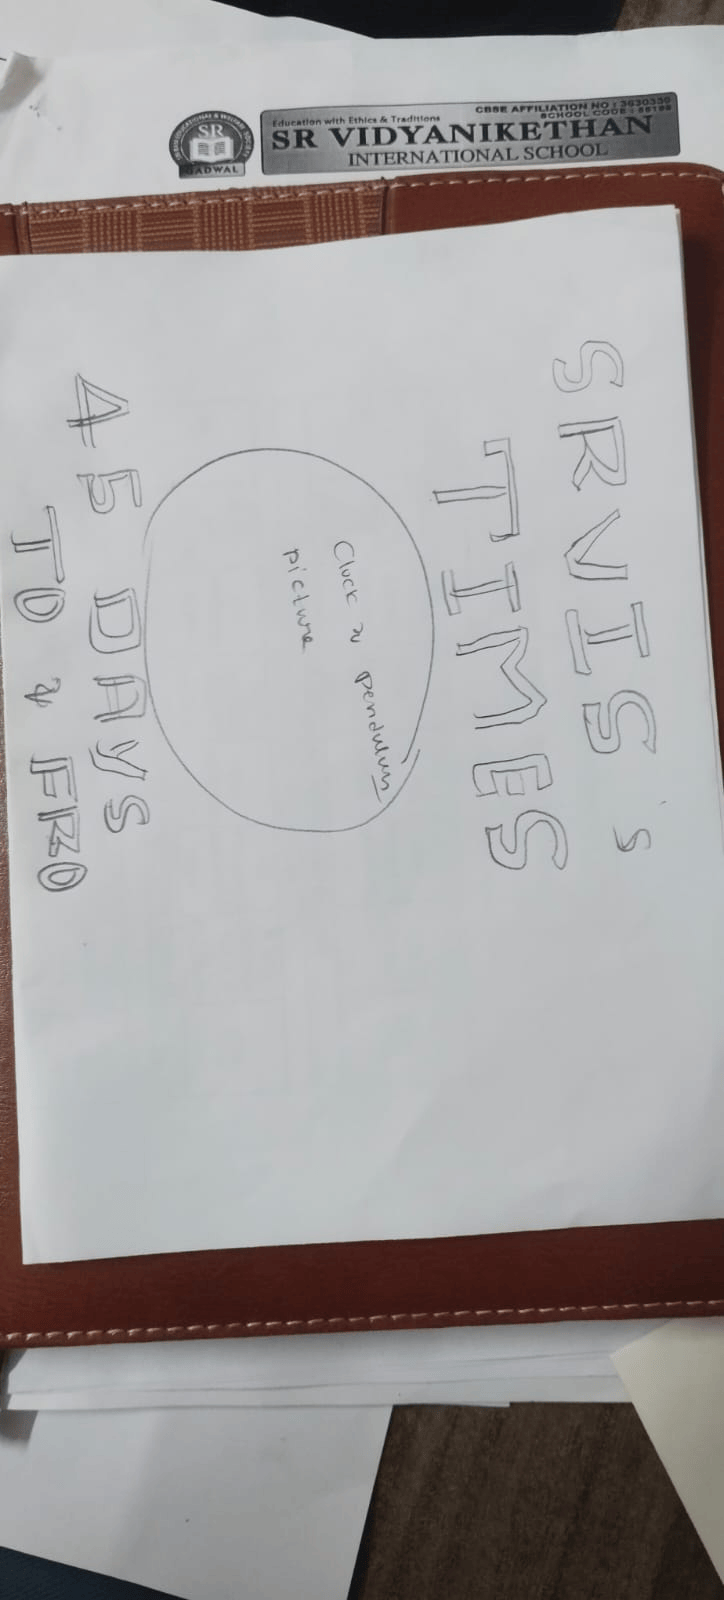 Education with Ethics & Traditions
CBSE AFFILIATION NO : 3630330
SCHOOL CODE :
SR VIDYANIKETHAN
INTERNATIONAL SCHOOL
SR
GADWAL
SRVIS's
TIMES
Clock ~ pendulum
picture
45 DAYS
TO & FRO